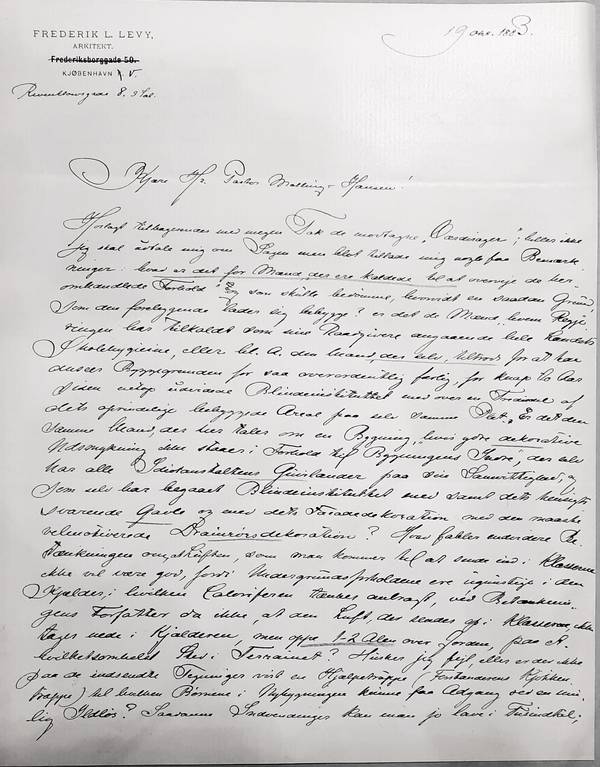 FREDERIK L. LEVY,
ARKITEKT.
Frederiksborggade 50.
KJØBENHAVN V.
Reventlowsgade 8. 3 Sal.
19 okt. 1883.
Kjære Hr. Pastor Malling-Hansen!
Hoslagt tilbagesendes med megen Tak de modtagne
jeg skal udtale mig om Sagen men blot tillade mig nogle faa Bemærk-
ninger: hvor er det for Mænd, der ere kaldede til at overveje de her-
omhandlede Forhold og som skulle bedømme, hvorvidt en saadan Grund,
som den foreliggende lader sig bebygge? er det de Mænd, hvem Regje-
ringen har tilkaldt som sine Raadgivere angaaende hele Landets
Skolehygieine, eller bl. A. den Mand, der selv, for at han
Byggegrunden for saa overordentlig farlig, for knap 10 Aar
siden netop udvidede Blindeinstitutet med over en af
dets oprindelige bebyggede Areal paa selv samme Plet. Er det den
samme Mand, der her taler om en Bygning, hvis ydre dekorative
Udsmykning ikke staaer i Forhold til Bygningens Indre, der selv
har alle Idiotanstaltens Guirlander paa sin Samvittighed, og
som selv har begaaet Blindeinstitutet med samt dets
svarende Gavle og med dets Facadedekoration med den maaske
velmotiverede Drainrørsdekoration? Hvor falder endvidere Be-
tænkningen om, at Luften, som man kommer til at sende ind i Klasserne
ikke vil være god, fordi Undergrundsforholdene ere ugunstige i den
Kjælder, i hvilken Caloriferen tænkes anbragt, véd Betænknin-
gens Forfatter da ikke, at den Luft, der sendes op i Klasserne, ikke
tages nede i Kjælderen, men oppe 1-2 Alen over Jorden, paa et
hvilketsomhelst Sted i Terrainet? Husker jeg fejl, eller er der ikke
paa de indsendte Tegninger vist en Hjælpetrappe (Forstanderens Kjøkken-
trappe) til hvilken Børnene i Nybygningen kunne faa Adgang ved en mu-
lig Ildløs? Saadanne Indvendinger kan man jo lave i Tusindtal;